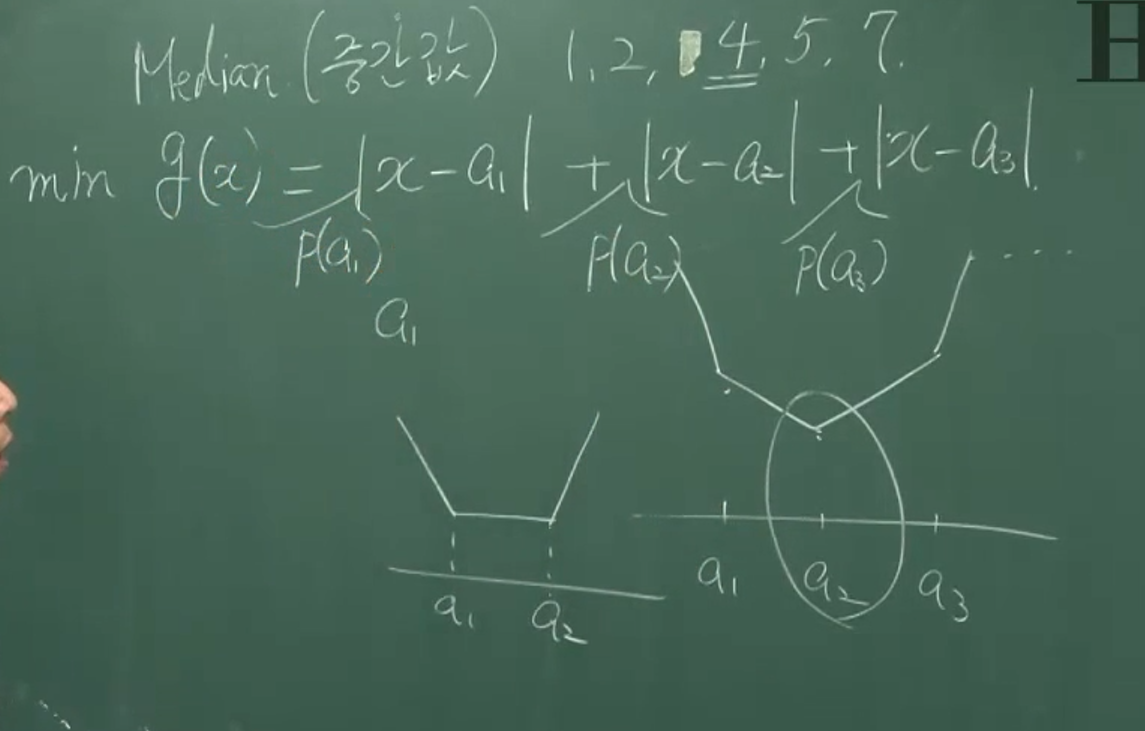 Median (중간값) 1, 2, 4, 5, 7.
min g(x) = |x-a₁| + |x-a₂| + |x-a₃|.
p(a₁) p(a₂) p(a₃) ....
a₁
a₁ a₂
a₁ a₂ a₃
H